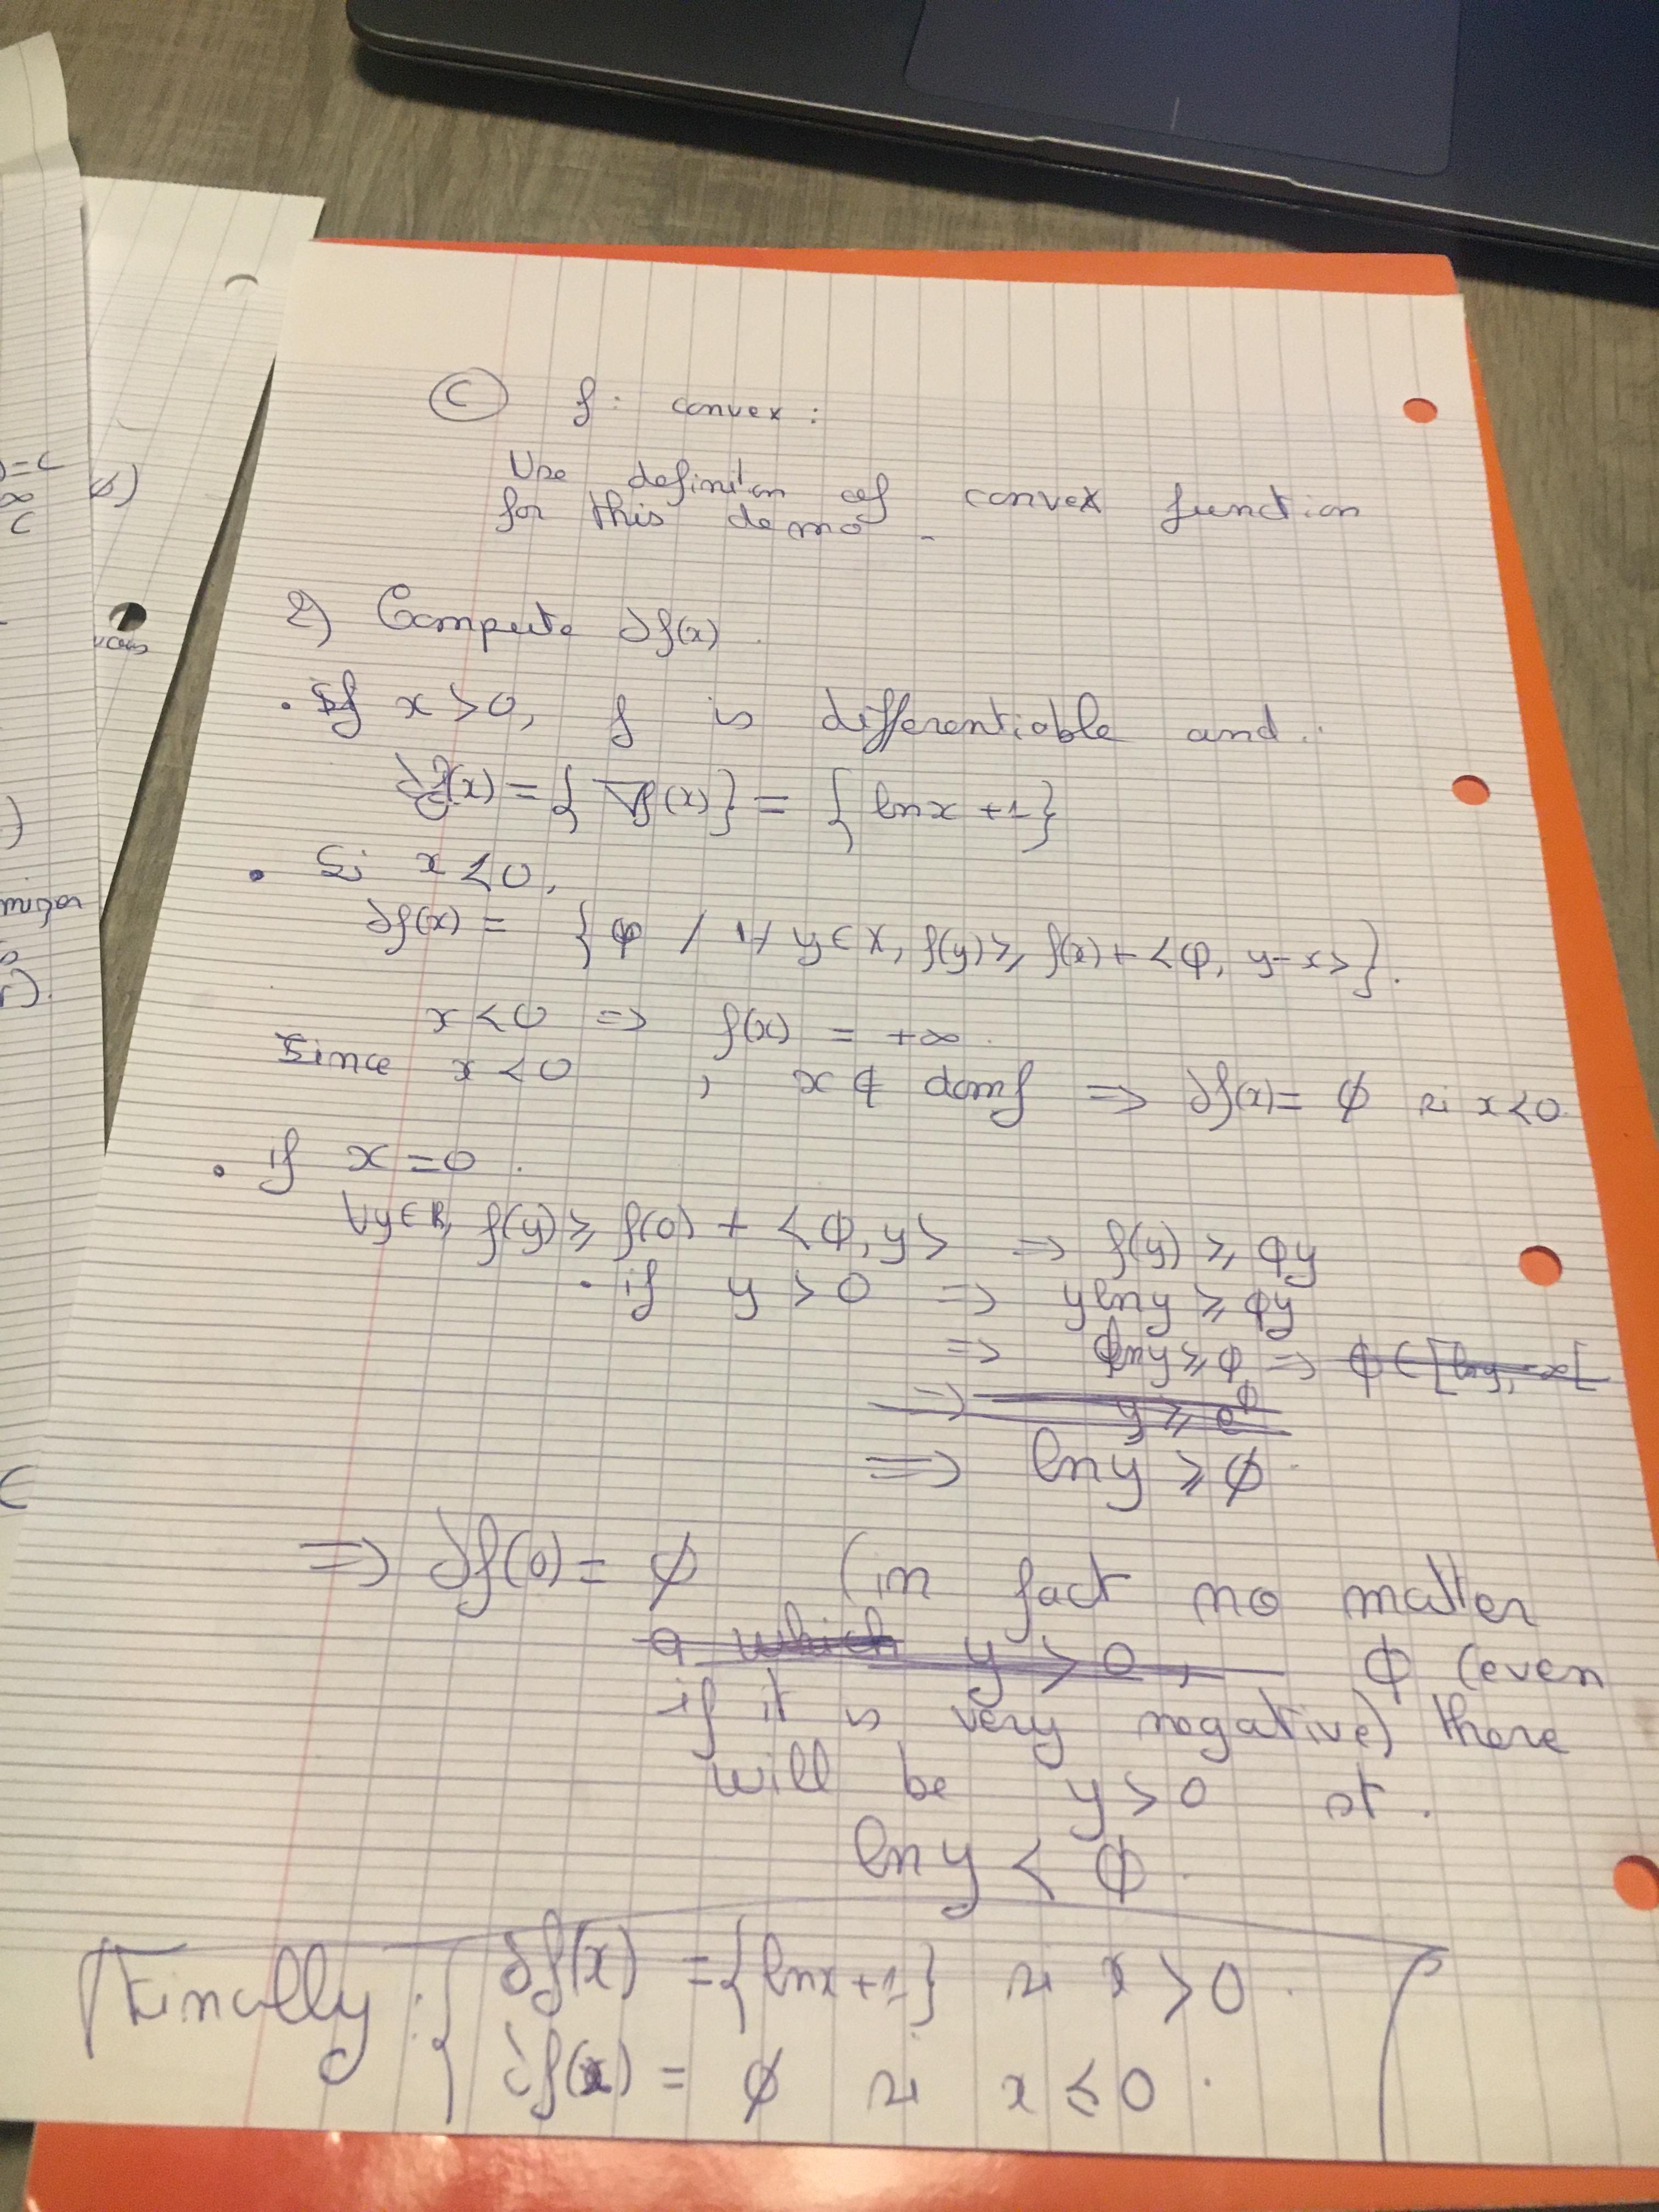 Ⓒ f: convex :
Use definition of convex function
for this demo.
2) Compute ∂f(x).
• If x > 0, f is differentiable and :
∂f(x) = { ∇f(x) } = { ln x + 1 }
• Si x < 0,
∂f(x) = { φ / ∀ y ∈ X, f(y) ≥ f(x) + <φ, y - x> }.
x < 0 => f(x) = +∞.
Since x < 0 , x ∉ domf => ∂f(x) = ∅ si x < 0.
• if x = 0.
∀y ∈ R, f(y) ≥ f(0) + <φ, y> => f(y) ≥ φy
• if y > 0 => y ln y ≥ φy
=> ln y ≥ φ => φ ∈ [ln y, -∞[
=> y ≥ e^φ
=> ln y ≥ φ.
=> ∂f(0) = ∅ (in fact no matter
a which y > 0, φ (even
if it is very negative) there
will be y > 0 st.
ln y < φ.
Finally : { ∂f(x) = { ln x + 1 } si x > 0.
∂f(x) = ∅ si x ≤ 0.
)=C
∞
C
φ)
vous
)
miser
C